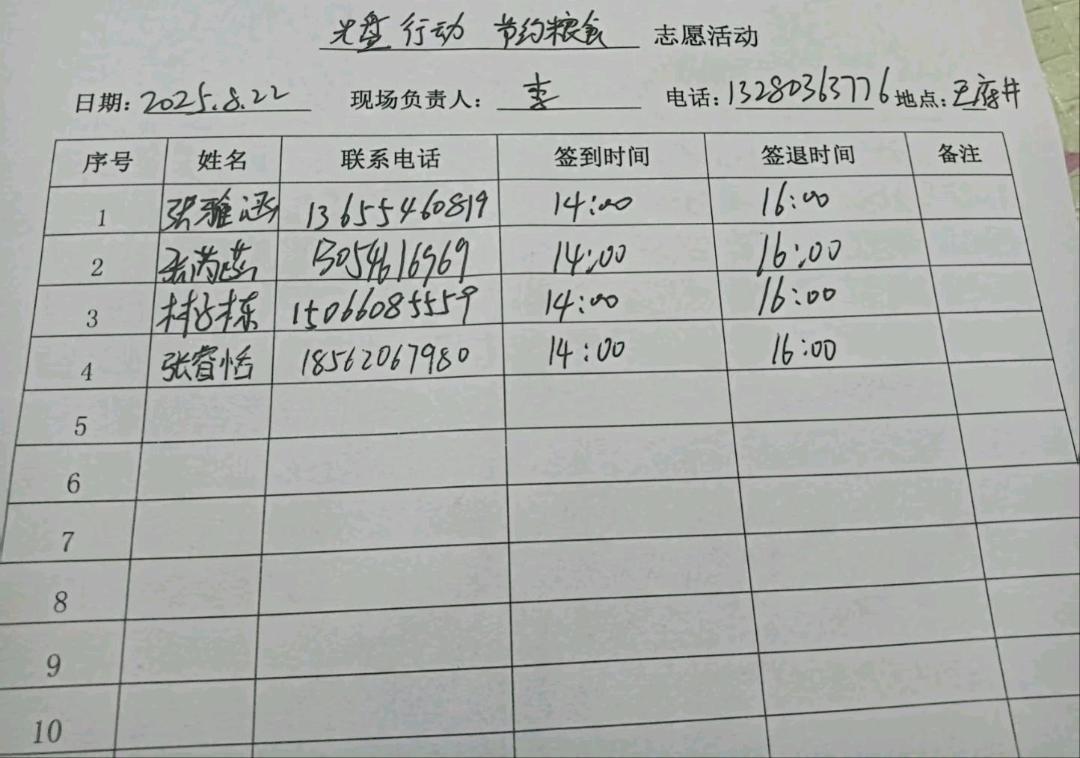 光盘行动 节约粮食 志愿活动
日期: 2025.8.22 现场负责人: 李 电话: 13280363776 地点: 王府井
序号 姓名 联系电话 签到时间 签退时间 备注
1 张雅涵 13655460819 14:00 16:00
2 张 13054616969 14:00 16:00
3 林子栋 15066085559 14:00 16:00
4 张睿恬 18562067980 14:00 16:00
5
6
7
8
9
10